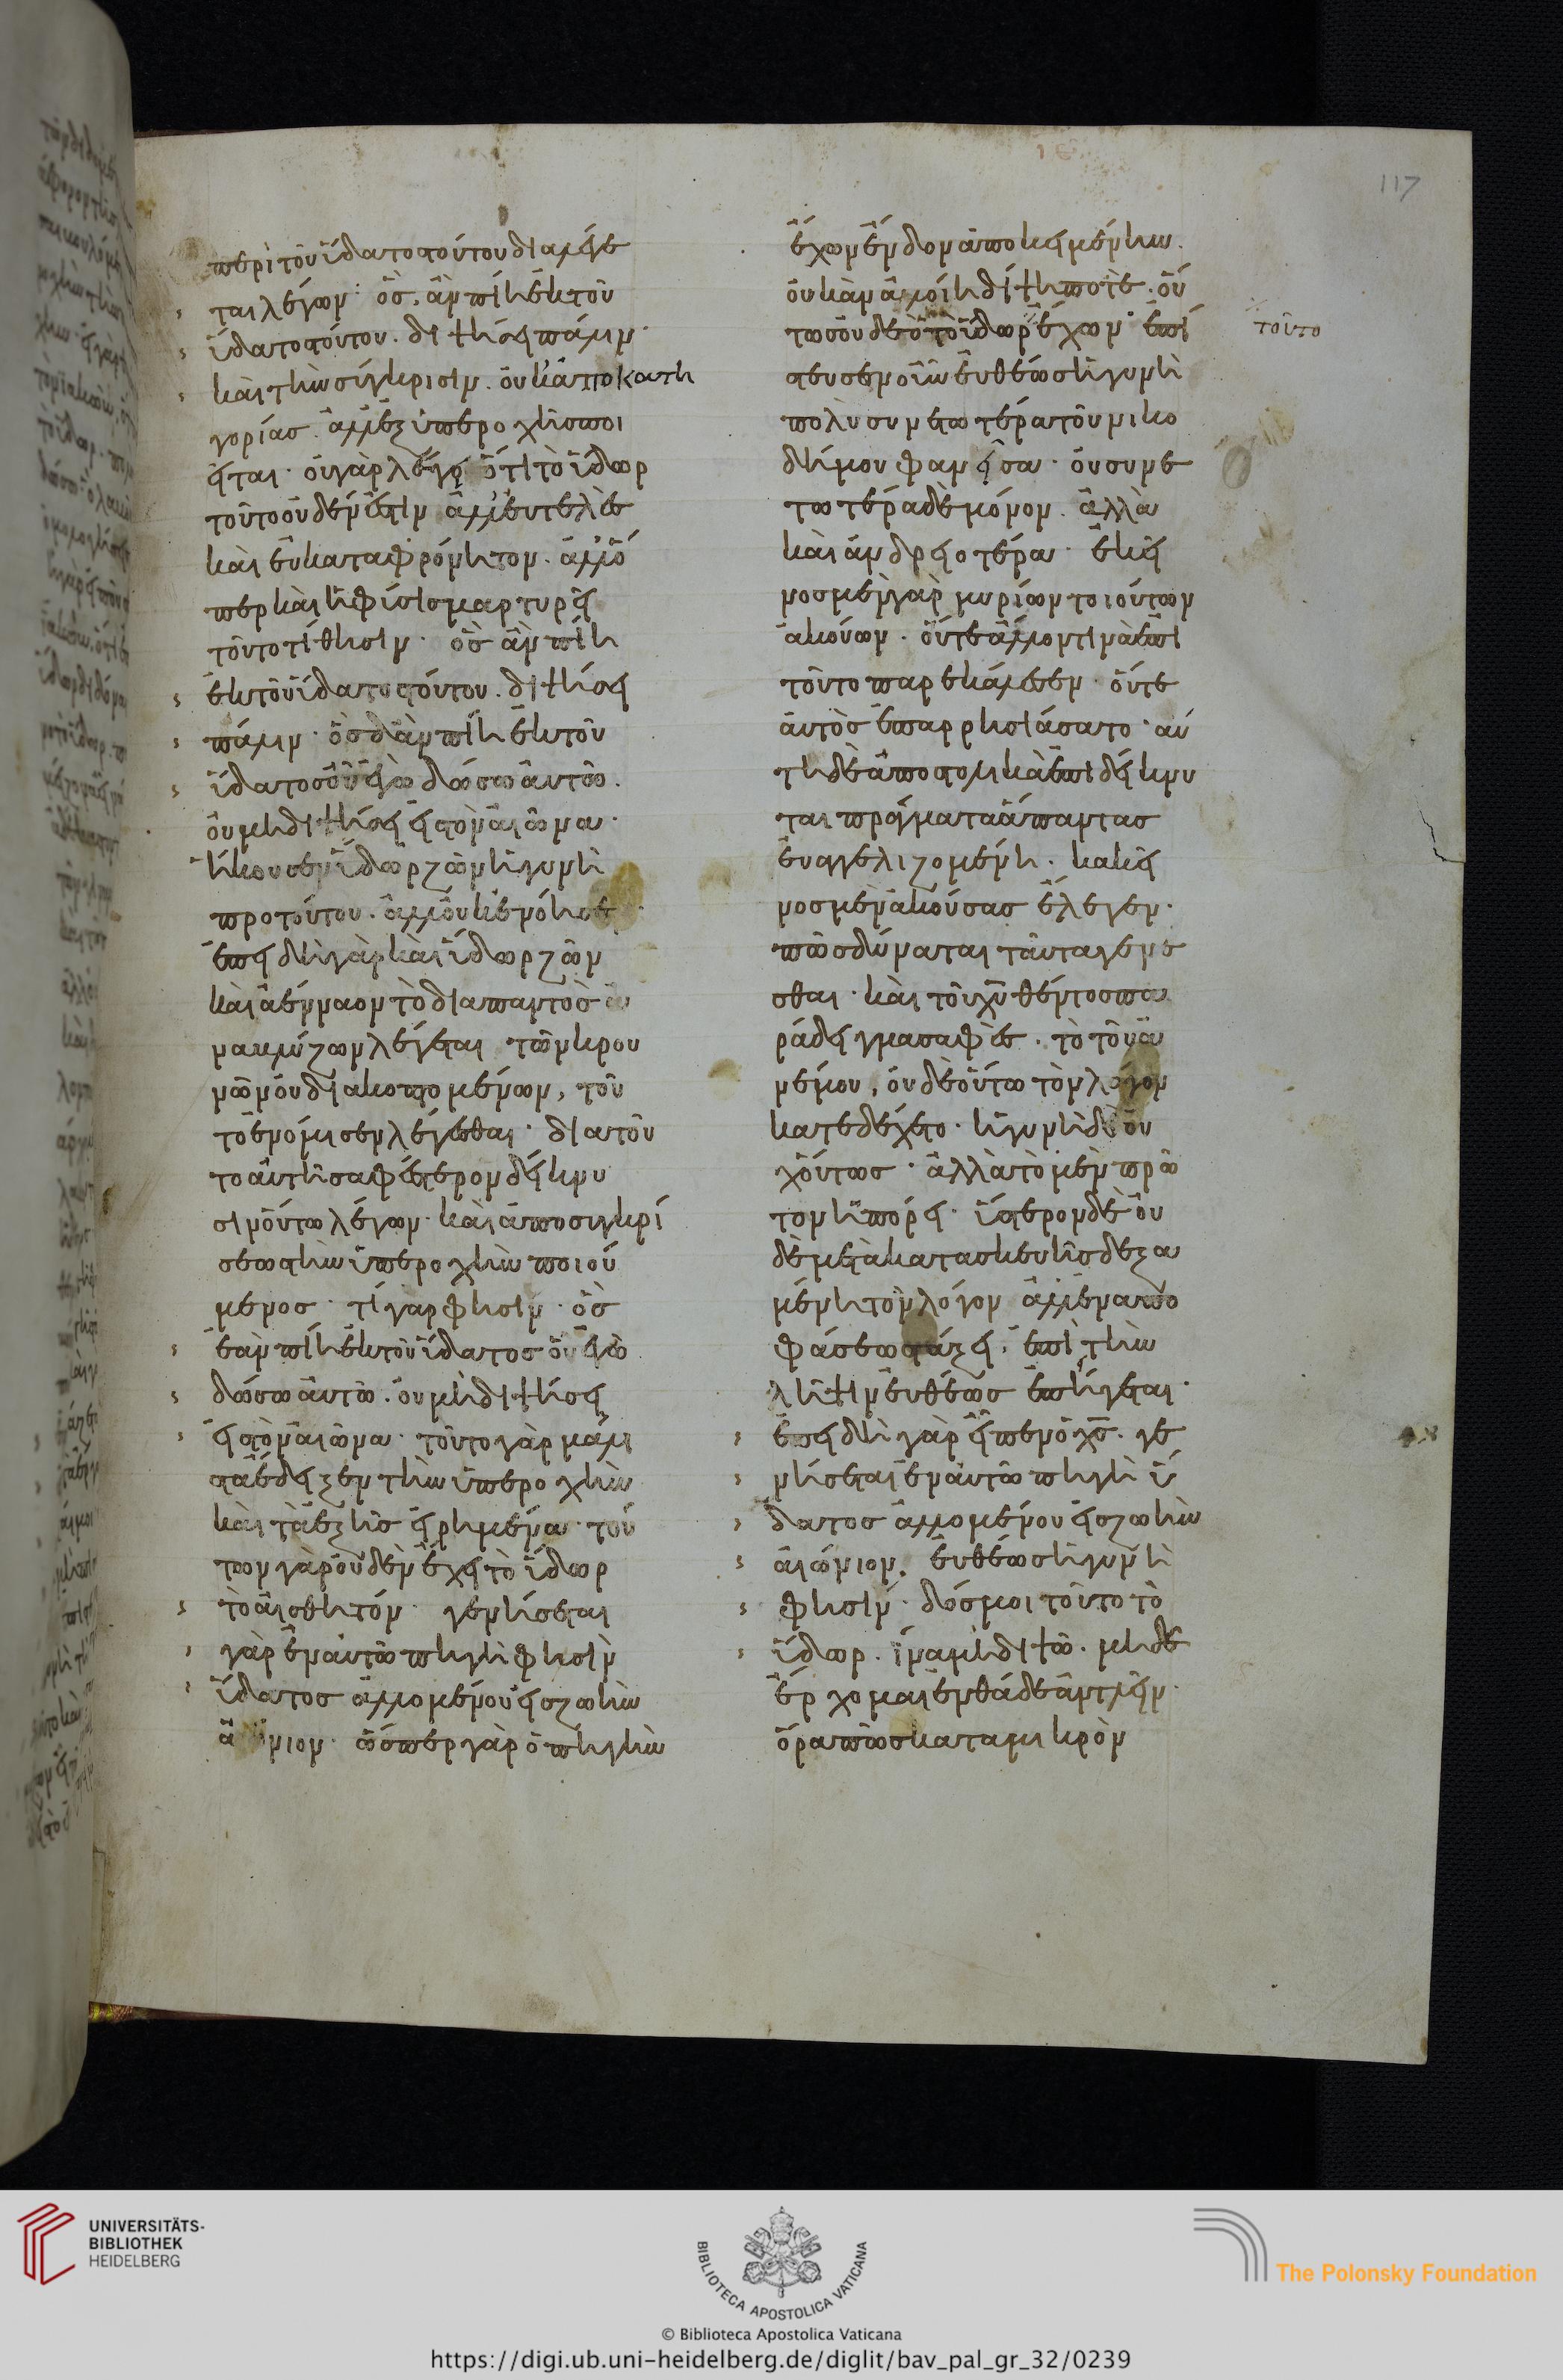 περὶ τοῦ ὕδατος τούτου διαλέγε
ται λέγων· ὃς ἂν πίη ἐκ τοῦ
ὕδατος τούτου. διψήσει πάλιν·
καὶ τὴν σύγκρισιν. οὐκ ἀπὸ κατη
γορίας. ἀλλ' ἐξ ὑπεροχῆς ποι
εῖται· οὐ γὰρ λέγει ὅτι τὸ ὕδωρ
τοῦτο οὐδέν ἐστιν ἀλλ' εὐτελὲς
καὶ εὐκαταφρόνητον. ἀλλ' ὅ
περ καὶ ἡ φύσις μαρτυρεῖ
τοῦτο τίθησιν· ὃς ἂν πίη
ἐκ τοῦ ὕδατος τούτου. διψήσει
πάλιν· ὃς δ' ἂν πίη ἐκ τοῦ
ὕδατος οὗ ἐγὼ δώσω αὐτῶ.
οὐ μὴ διψήσει εἰς τὸν αἰῶνα·
ἤκουσεν ὕδωρ ζῶν ἡ γυνὴ
πρὸ τούτου. ἀλλ' οὐκ ἐνόησε·
ἐπειδὴ γὰρ καὶ ὕδωρ ζῶν
καὶ ἀένναον τὸ διαπαντὸς ἀ
ναβλύζων λέγεται τῶν κρου
νῶν οὐ διακοπτομένων, τοῦ
το ἐνόμισεν λέγεσθαι· διὰ τοῦ
το αὐτῆ σαφέστερον δείκνυ
σιν οὕτω λέγων· καὶ ἀπὸ συγκρί
σεως τὴν ὑπεροχὴν ποιού
μενος· τί γάρ φησιν· ὃς
ἐὰν πίη ἐκ τοῦ ὕδατος οὗ ἐγὼ
δώσω αὐτῶ. οὐ μὴ διψήσει
εἰς τὸν αἰῶνα· τοῦτο γὰρ μάλι
στα ἔδειξεν τὴν ὑπεροχὴν
καὶ τὰ ἑξῆς εἰρημένα· τού
των γὰρ οὐδὲν ἔχει τὸ ὕδωρ
τὸ αἰσθητόν· γενήσεται
γὰρ ἐν αὐτῶ πηγὴ φησὶν
ὕδατος ἁλλομένου εἰς ζωὴν
αἰώνιον· ὥσπερ γὰρ ὁ πηγὴν
ἔχων ἔνδον ἀποκειμένην.
οὐκ ἂν ἁλοίη δίψη ποτέ. οὕ
τως οὐδὲ ὁ τὸ ὕδωρ ἔχων· ἐπί
τοῦτο
στευσεν οὖν εὐθέως ἡ γυνὴ
πολὺ συνετωτέρα τοῦ νικο
δήμου φανεῖσα· οὐ συνε
τωτέρα δὲ μόνον. ἀλλὰ
καὶ ἀνδρειοτέρα· ἐκεῖ
νος μὲν γὰρ μυρίων τοιούτων
ἀκούων. οὔτε ἄλλον τινὰ ἐπὶ
τοῦτο παρεκάλεσεν· οὔτε
αὐτὸς ἐπαρρησιάσατο· αὕ
τη δὲ ἀποστολικὰ ἐπιδείκνυ
ται πράγματα ἅπαντας
εὐαγγελιζομένη. κακεῖ
νος μὲν ἀκούσας ἔλεγεν·
πῶς δύναται ταῦτα γενέ
σθαι· καὶ τοῦ χῦ θέντος πα
ράδειγμα σαφὲς. τὸ τοῦ ἀ
νέμου, οὐδὲ οὕτω τὸν λόγον
κατεδέχετο· ἡ γυνὴ δὲ οὐ
χ οὕτως· ἀλλὰ τὸ μὲν πρῶ
τον ἠπόρει· ὕστερον δὲ οὐ
δὲ μετὰ κατασκευῆς δεξα
μένη τὸν λόγον ἀλλ' ἐν ἀπο
φάσεως τάξει. ἐπὶ τὴν
λῆψιν εὐθέως ἐπείγεται·
ἐπειδὴ γὰρ εἶπεν ὁ χς. γε
νήσεται ἐν αὐτῶ πηγὴ ὕ
δατος ἁλλομένου εἰς ζωὴν
αἰώνιον. εὐθέως ἡ γυνή
φησίν· δός μοι τοῦτο τὸ
ὕδωρ. ἵνα μὴ διψῶ. μηδὲ
ἔρχομαι ἐνθάδε ἀντλεῖν·
ὅρα πῶς καταμικρὸν
117
UNIVERSITÄTS-
BIBLIOTHEK
HEIDELBERG
BIBLIOTECA APOSTOLICA VATICANA
The Polonsky Foundation
© Biblioteca Apostolica Vaticana
https://digi.ub.uni-heidelberg.de/diglit/bav_pal_gr_32/0239